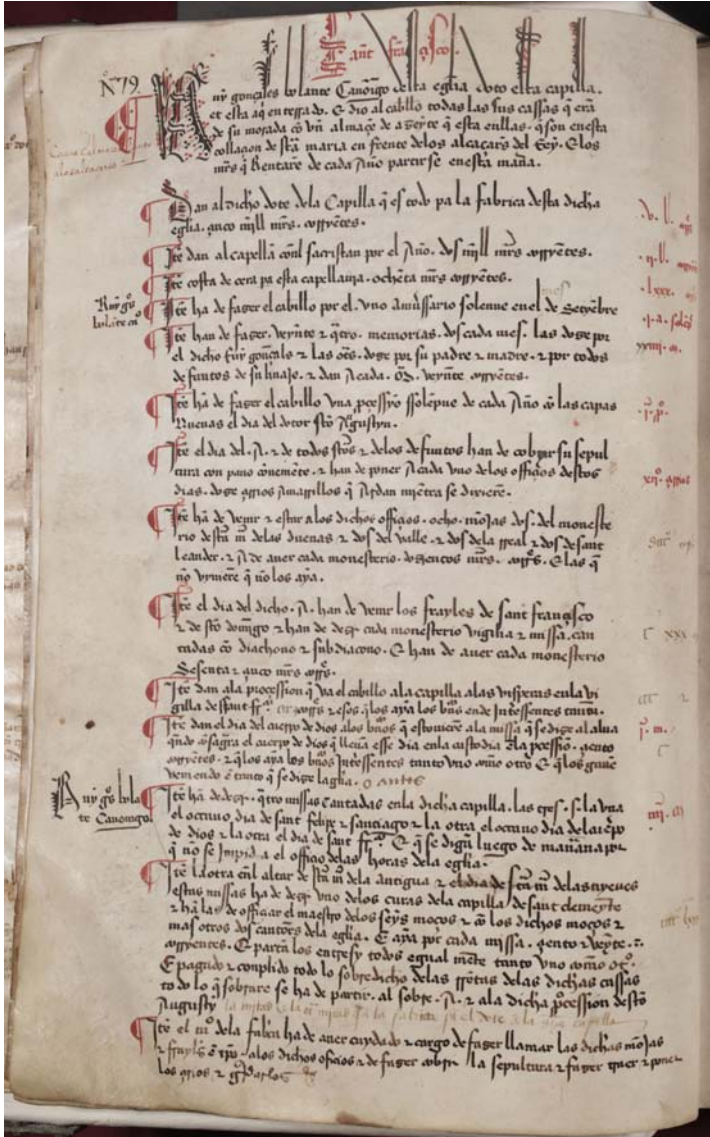 sant françisco
Nº 79.
Ruy gonçales bolante Canoigo desta eglia doto esta capilla.
et esta aq̃ enterrado. E dio al cabllo todas las sus cassas q̃ erã
de su morada cõ vn almaçẽ de aseyte q̃ esta enllas. q̃ son en esta
collaçion de stã maria en frente delos alcaçars del Rey. E los
mrs q̃ Rentarẽ de cada Año partir se en esta mañã.
Dan al dicho dote dela Capilla q̃ es todo pa la fabrica desta dicha
eglia. çinco mill mrs. corryentes.
.v. U.
Itẽ dan al capellã cõnl sacristan por el Año. dos mill mrs corryentes.
.ii. U.
Itẽ costa de çera pa esta capellania. ochẽta mrs corryentes.
.lxxx.
Ruy gõs
bolãte cõ
Itẽ ha de faser el cabillo por el. vno aniũssario solenne en el mes de Setyẽbre
.i. a. solep̃
Itẽ han de faser. veynte & qtro. memorias. dos cada mes. las dose por
xxiiii. m.
el dicho Ruy gonçals & las ots. dose por su padre & madre. & por todos
defuntos de su linaje. & dan Acada. veynte corryentes.
Itẽ hã de faser el cabillo vna p̃cessyõ ssolepne de cada Año cõ las capas
.i. p̃.
Nueuas el dia del dotor stõ Agustyn.
Itẽ el dia del. A. & de todos stõs & delos defuntos han de cobrir su sepul
tura con paño cõueniẽte. & han de poner Acada vno delos offiçios destos
xii. çirios
dias. dose çirios Amarillos q̃ Ardan miẽtra se dixiere.
Itẽ hã de venir & estar alos dichos offiçios. ocho. mõjas dos. del moneste
rio de stã m̃ de las dueñas & dos del valle. & dos dela rreal & dos de sant
leander. & A de auer cada monesterio. dosentos mrs. corrẽs. E las q̃
nõ vynierẽ q̃ nõ los aya.
Itẽ el dia del dicho. A. han de venir los frayles de sant françisco
& de stõ domĩgo & han de desir cada monesterio vigilia & missa. can
C xxx
tadas cõ diachono & subdiacono. E han de auer cada monesterio
Sesenta & çinco mrs corrẽs.
Itẽ dan ala proçession q̃ va el cabillo ala capilla alas visperas enla vi
gilla de ssant frco. corrẽs & esos q̃ los ayã los bños ende inte̊ssentes
Itẽ dan el dia del cuerpo de dios alos bños q̃ estouierẽ ala missa q̃ se dise al alua
i. m.
qñdo cõsagrã el cuerpo de dios q̃ lleuã esse dia enla custodia en la p̃cessio. çento
C
corryẽtes. & q̃ los ayã los bños inte̊ssentes tanto vno como otro E q̃ los ganẽ
veniendo en tanto q̃ se dise la glia. o antes
Ruy gõs bolã
te Canonigo
Itẽ hã de desir. qtro missas cantadas enla dicha capilla. las tres. s. la vna
iiii. m̃
el octauo dia de sant felipe & santiago & la otra el octauo dia del cuerpo
de dios & la otra el dia de sant frco. E q̃ se digã luego de mañana por
q̃ nõ se impida el offiçio delas horas dela eglia.
Itẽ la otra en̄l altar de stã m̃ dela antigua & el dia de stã m̃ delas nyeues
estas missas ha de desir vno delos curas dela capilla de sant clemeynte
& hã las de offiçiar el maestro delos seys moços & cõ los dichos moços &
mas otros dos cantores dela eglia. E ayã por cada missa. çento & veynte.
corryentes. E partã los entresy todos egual mẽte tanto vno como otº.
E pagado & conplido todo lo sobredicho delas rrẽtas delas dichas cassas
todo lo q̃ sobrare se ha de partir. al sobre. A. & ala dicha p̃cession de stõ
Agusty la mitad & la otra mitad pa la fabrica
Itẽ el mº dela fabrica ha de auer cuydado & cargo de faser llamar las dichas mõjas
& frayles alos dichos ofiçios & de faser cobrir la sepultura & faser traer & poner
los çirios & gdarlos